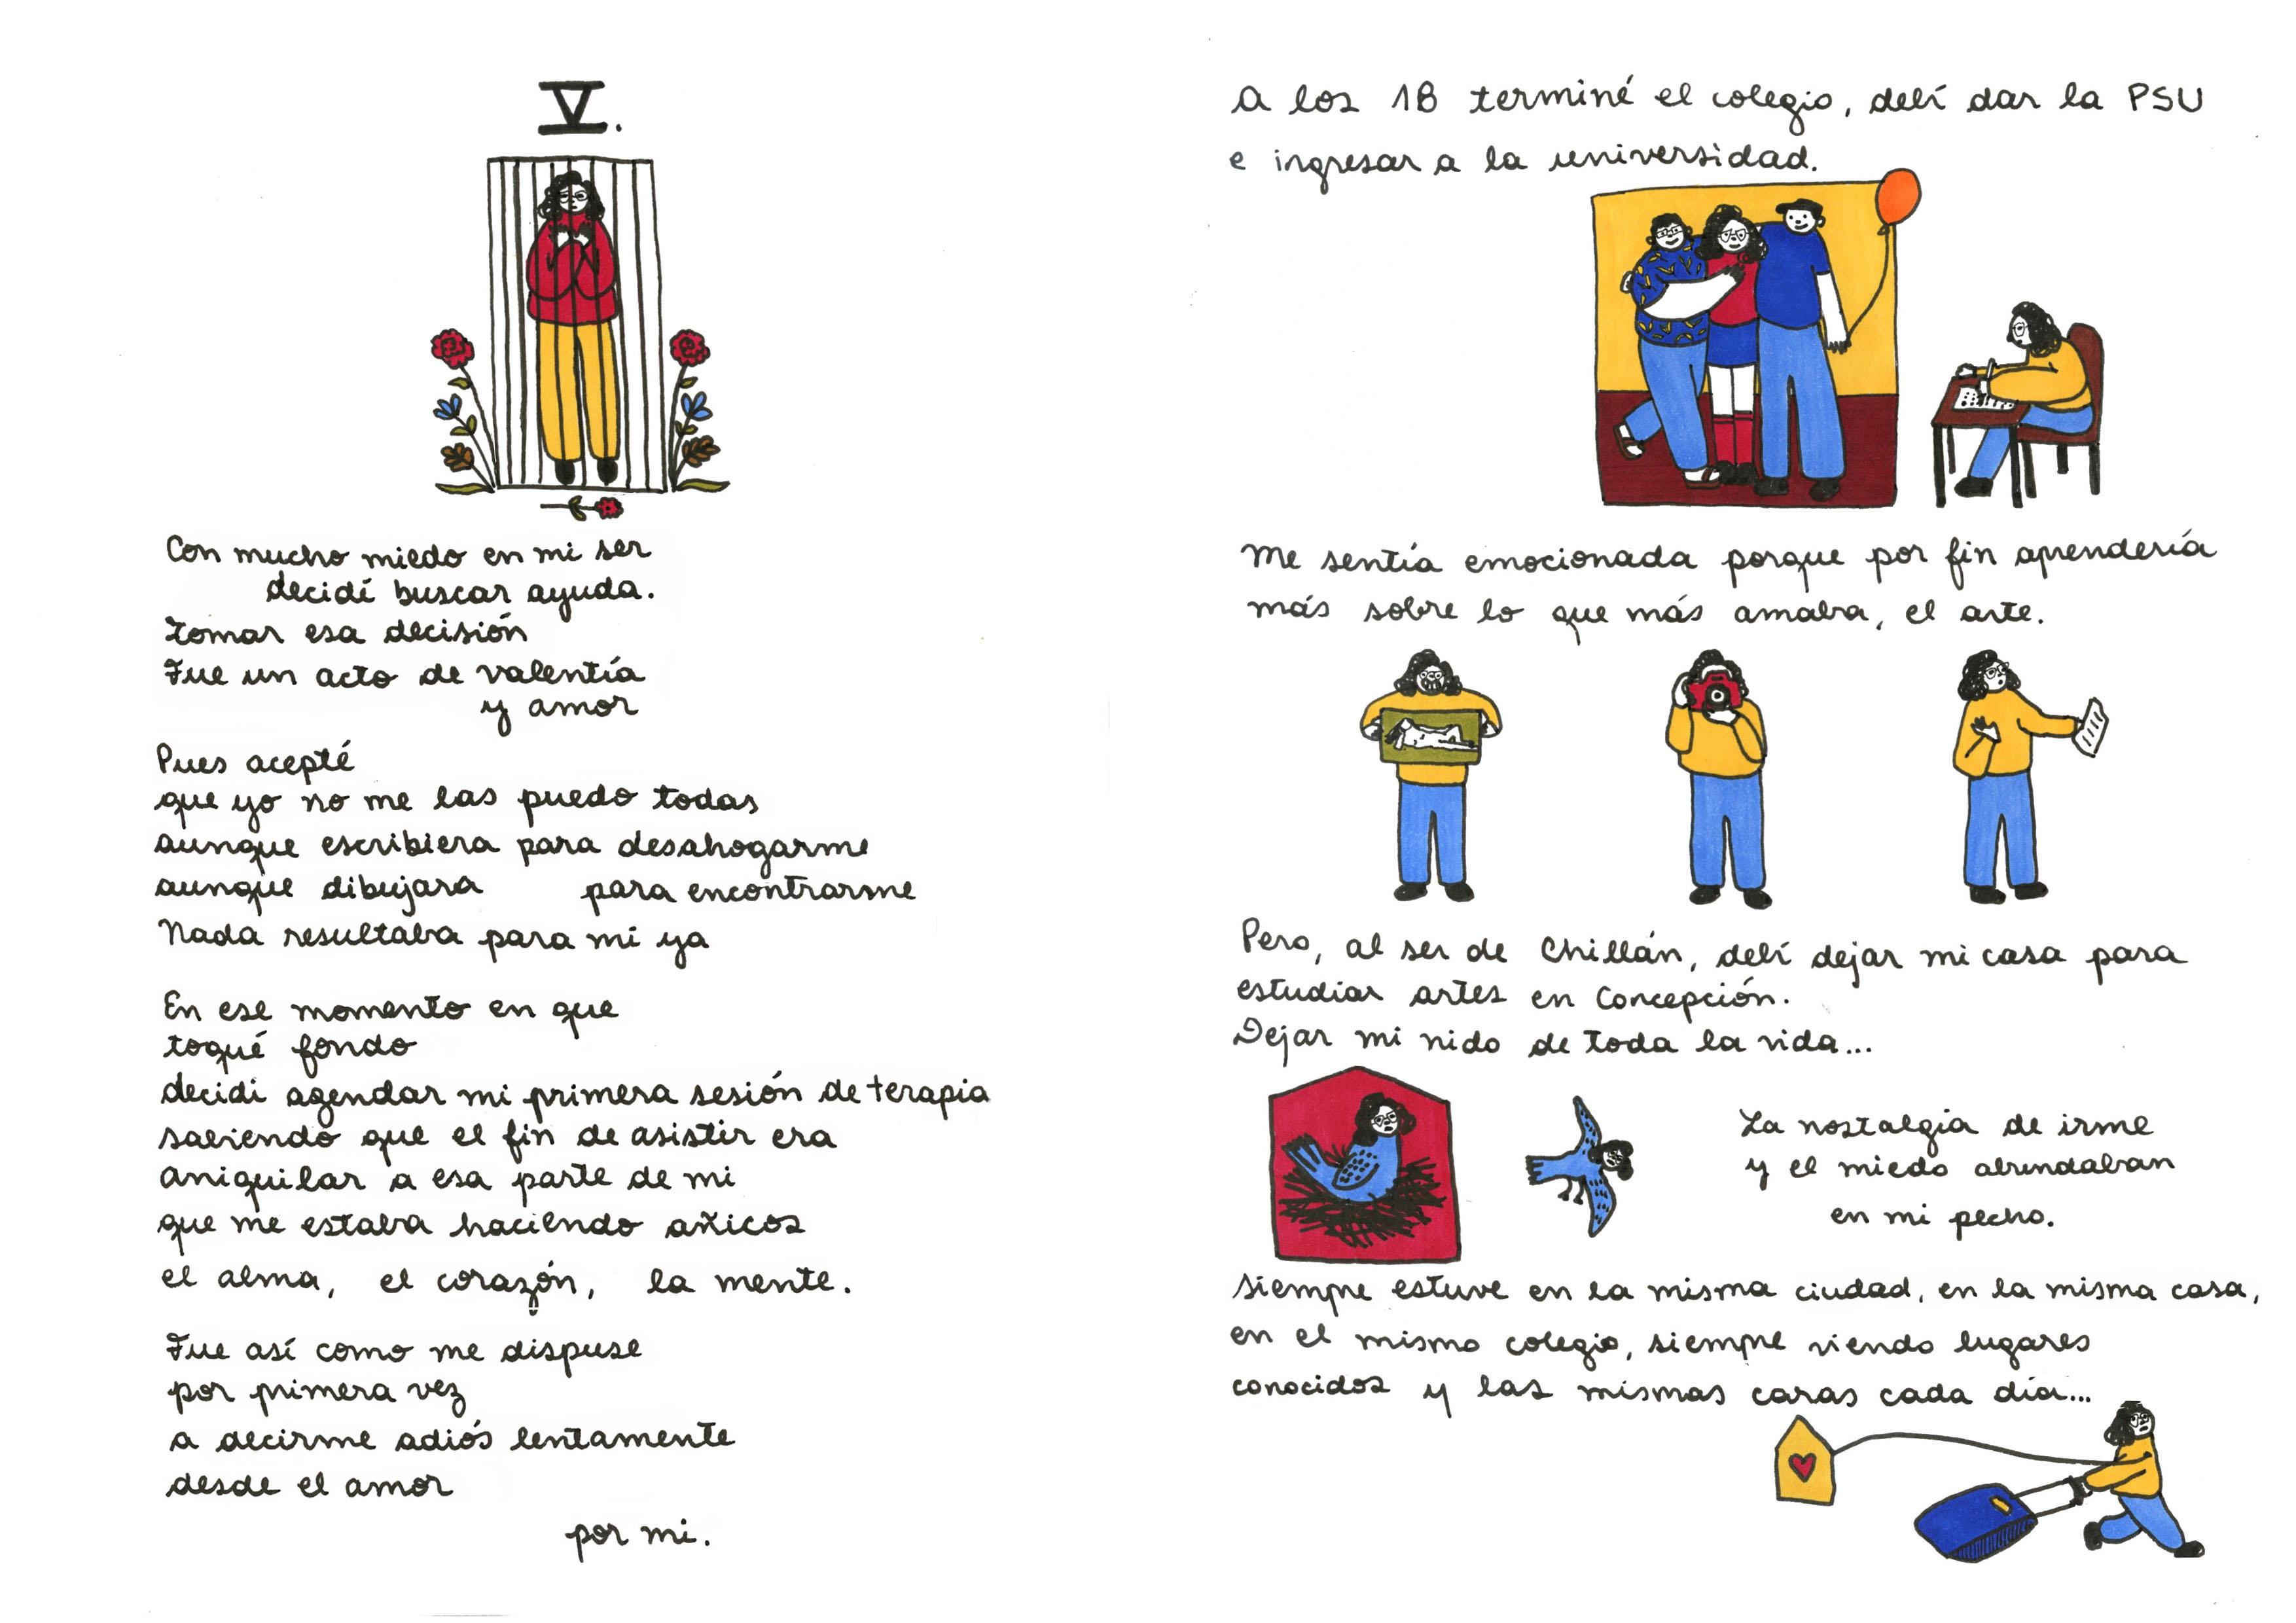 V.
Con mucho miedo en mi ser
decidí buscar ayuda.
Tomar esa decisión
Fue un acto de valentía
y amor
Pues acepté
que yo no me las puedo todas
aunque escribiera para desahogarme
aunque dibujara para encontrarme
Nada resultaba para mi ya
En ese momento en que
toqué fondo
decidi agendar mi primera sesión de terapia
sabiendo que el fin de asistir era
aniquilar a esa parte de mi
que me estaba haciendo añicos
el alma, el corazón, la mente.
Fue así como me dispuse
por primera vez
a decirme adiós lentamente
desde el amor
por mi.
A los 18 terminé el colegio, debí dar la PSU
e ingresar a la universidad.
Me sentía emocionada porque por fin aprendería
más sobre lo que más amaba, el arte.
Pero, al ser de Chillán, debí dejar mi casa para
estudiar artes en Concepción.
Dejar mi nido de toda la vida...
La nostalgia de irme
y el miedo abundaban
en mi pecho.
Siempre estuve en la misma ciudad, en la misma casa,
en el mismo colegio, siempre viendo lugares
conocidos y las mismas caras cada día...